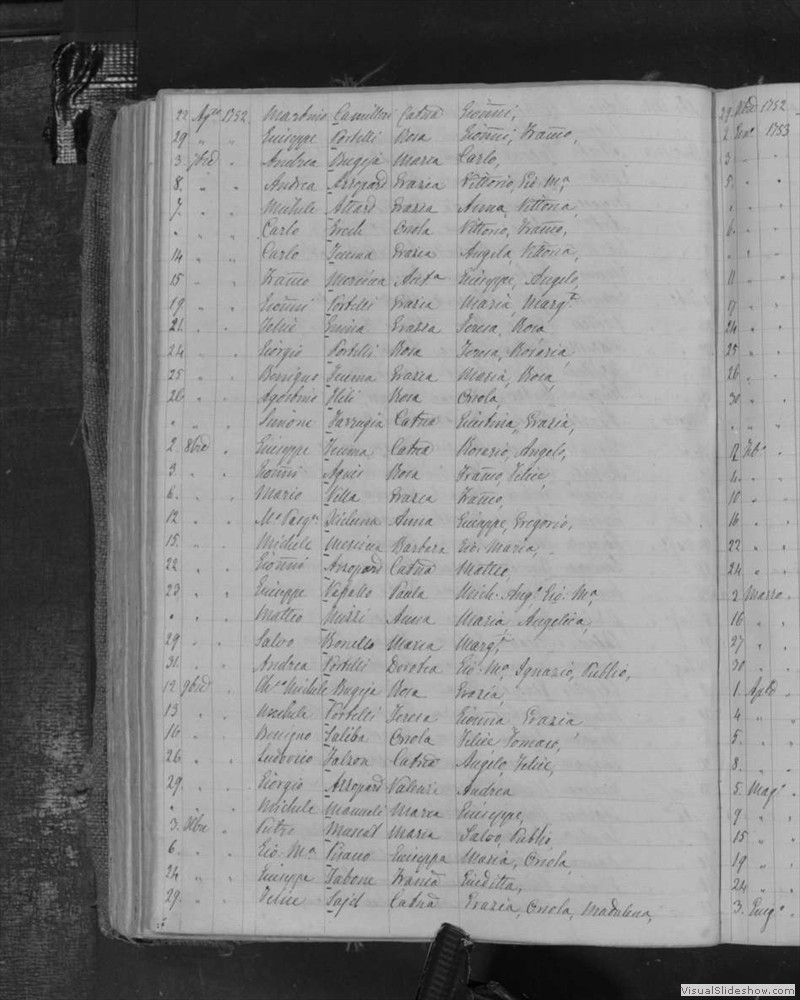 22 Ag.to 1752 Martino Camilleri Catna Gionni,
29 " " Giuseppe Portelli Rosa Gionni, Franco,
3 7bre " Andrea Bugeja Maria Carlo,
8. " " Andrea Azzopard Grazia Vittorio, Gio Ma
7. " " Michele Attard Grazia Anna, Vittoria,
" " " Carlo Ercili Orsola Vittorio, Franco,
14 " " Carlo Teuma Grazia Angela, Vittoria,
15 " " Franco Messina Anta Giuseppe, Angelo,
19 " " Gionni Portelli Grazia Maria, Margta
21. " " Felice Grazia Teresa, Rosa
24 " " Giorgio Portelli Rosa Teresa, Rosaria,
25 " " Benigno Teuma Grazia Maria, Rosa,
26 " " Agostino Rosa Orsola,
" " " Simone Farrugia Catna Giustina, Grazia,
2. 8bre " Giuseppe Teuma Catna Rosario, Angelo,
3. " " Gionni Agius Rosa Franco, Felice,
6. " " Mario Villa Grazia Franco,
12 " " Mo Pasqe Xicluna Anna Giuseppe, Gregorio,
15. " " Michele Messina Barbara Gio Maria,
22 " " Gionni Azzopard Catna Matteo,
23 " " Giuseppe Vapello Paola Mich. Ango Gio. Ma
" " " Matteo Mizzi Anna Maria Angelica,
29 " " Salvo Bonello Maria Margta
31. " " Andrea Portelli Dorotea Gio. Ma, Ignazio, Publio,
12 9bre " Michele Bugeja Rosa Grazia,
13 " " Michele Portelli Teresa Gionna, Grazia,
16 " " Benigno Saliba Orsola Felice, Tomaso,
26 " " Ludovico Falzon Catna Angelo, Felice,
29. " " Giorgio Azzopard Valenzi Andrea
" " " Michele Mamueli Maria Giuseppe,
3. Xbre " Pietro Muscat Maria Salvo, Publio,
6. " " Gio. Ma Pisano Giuseppa Maria, Orsola,
24 " " Giuseppe Tabone Franca Giuditta,
29. " " Felice Sajd Catna Grazia, Orsola, Madalena,
29 Xbre 1752
2 1753
3 " "
5. " "
" " "
6. " "
" " "
11 " "
17 " "
24 " "
25 " "
26 " "
30 " "
" " "
12 Feb.
4. " "
10 " "
16 " "
22 " "
24 " "
2 Marzo
16 " "
27 " "
30 " "
1. Aple
4 " "
5. " "
8. " "
5. Mago
9 " "
15 " "
19 " "
24 " "
3. Giugo
VisualSlideshow.com